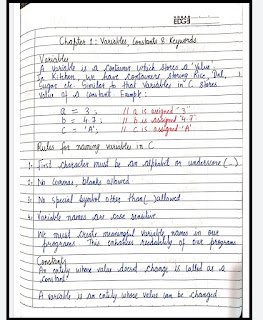 Chapter 1: Variables, Constants & Keywords
Variables
A variable is a container which stores a 'value'.
In Kitchen, we have containers storing Rice, Dal,
Sugar etc. Similar to that Variables in C stores
value of a constant. Example:
a = 3; // a is assigned "3"
b = 4.7; // b is assigned '4.7'
c = 'A'; // c is assigned 'A'
Rules for naming variables in C.
1. First character must be an alphabet or underscore (_)
2. No commas, blanks allowed
3. No special symbol other than (_) allowed
4. Variable names are case sensitive
We must create meaningful variable names in our
programs. This enhances readability of our programs
Constants
An entity whose value doesn't change is called as a
constant.
A variable is an entity whose value can be changed